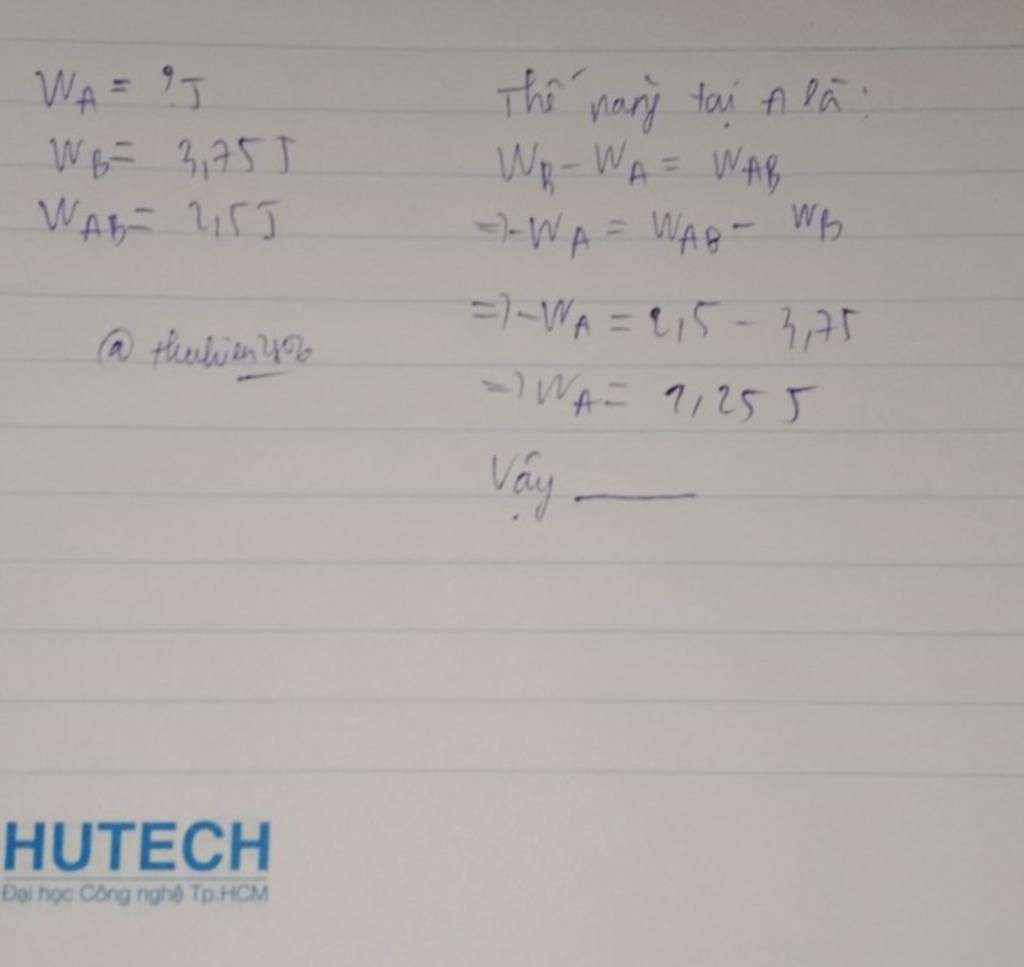 W_A = ? J
W_B = 3,75 J
W_AB = 2,5 J
@ thuhien2406
Thế năng tại A là:
W_B - W_A = W_AB
=> -W_A = W_AB - W_B
=> -W_A = 2,5 - 3,75
=> W_A = 1,25 J
Vậy ____
HUTECH
Đại học Công nghệ Tp.HCM